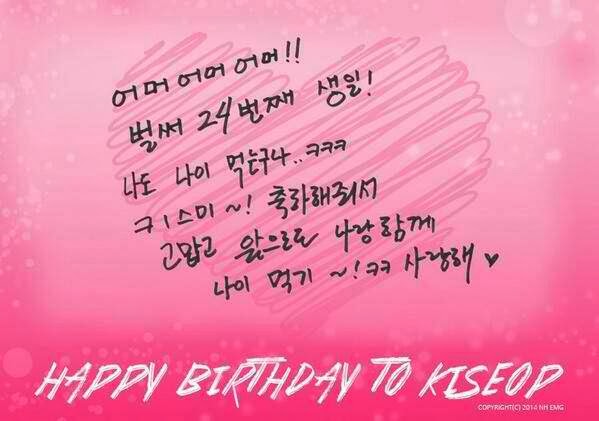 어머 어머 어머!!
벌써 24번째 생일!
나도 나이 먹는구나..ㅋㅋㅋ
ㅋㅣ스미 ~! 축하해줘서
고맙고 앞으로도 나랑 함께
나이 먹기 ~!ㅋㅋ 사랑해 ♥
HAPPY BIRTHDAY TO KISEOP
COPYRIGHT(C) 2014 NH EMG